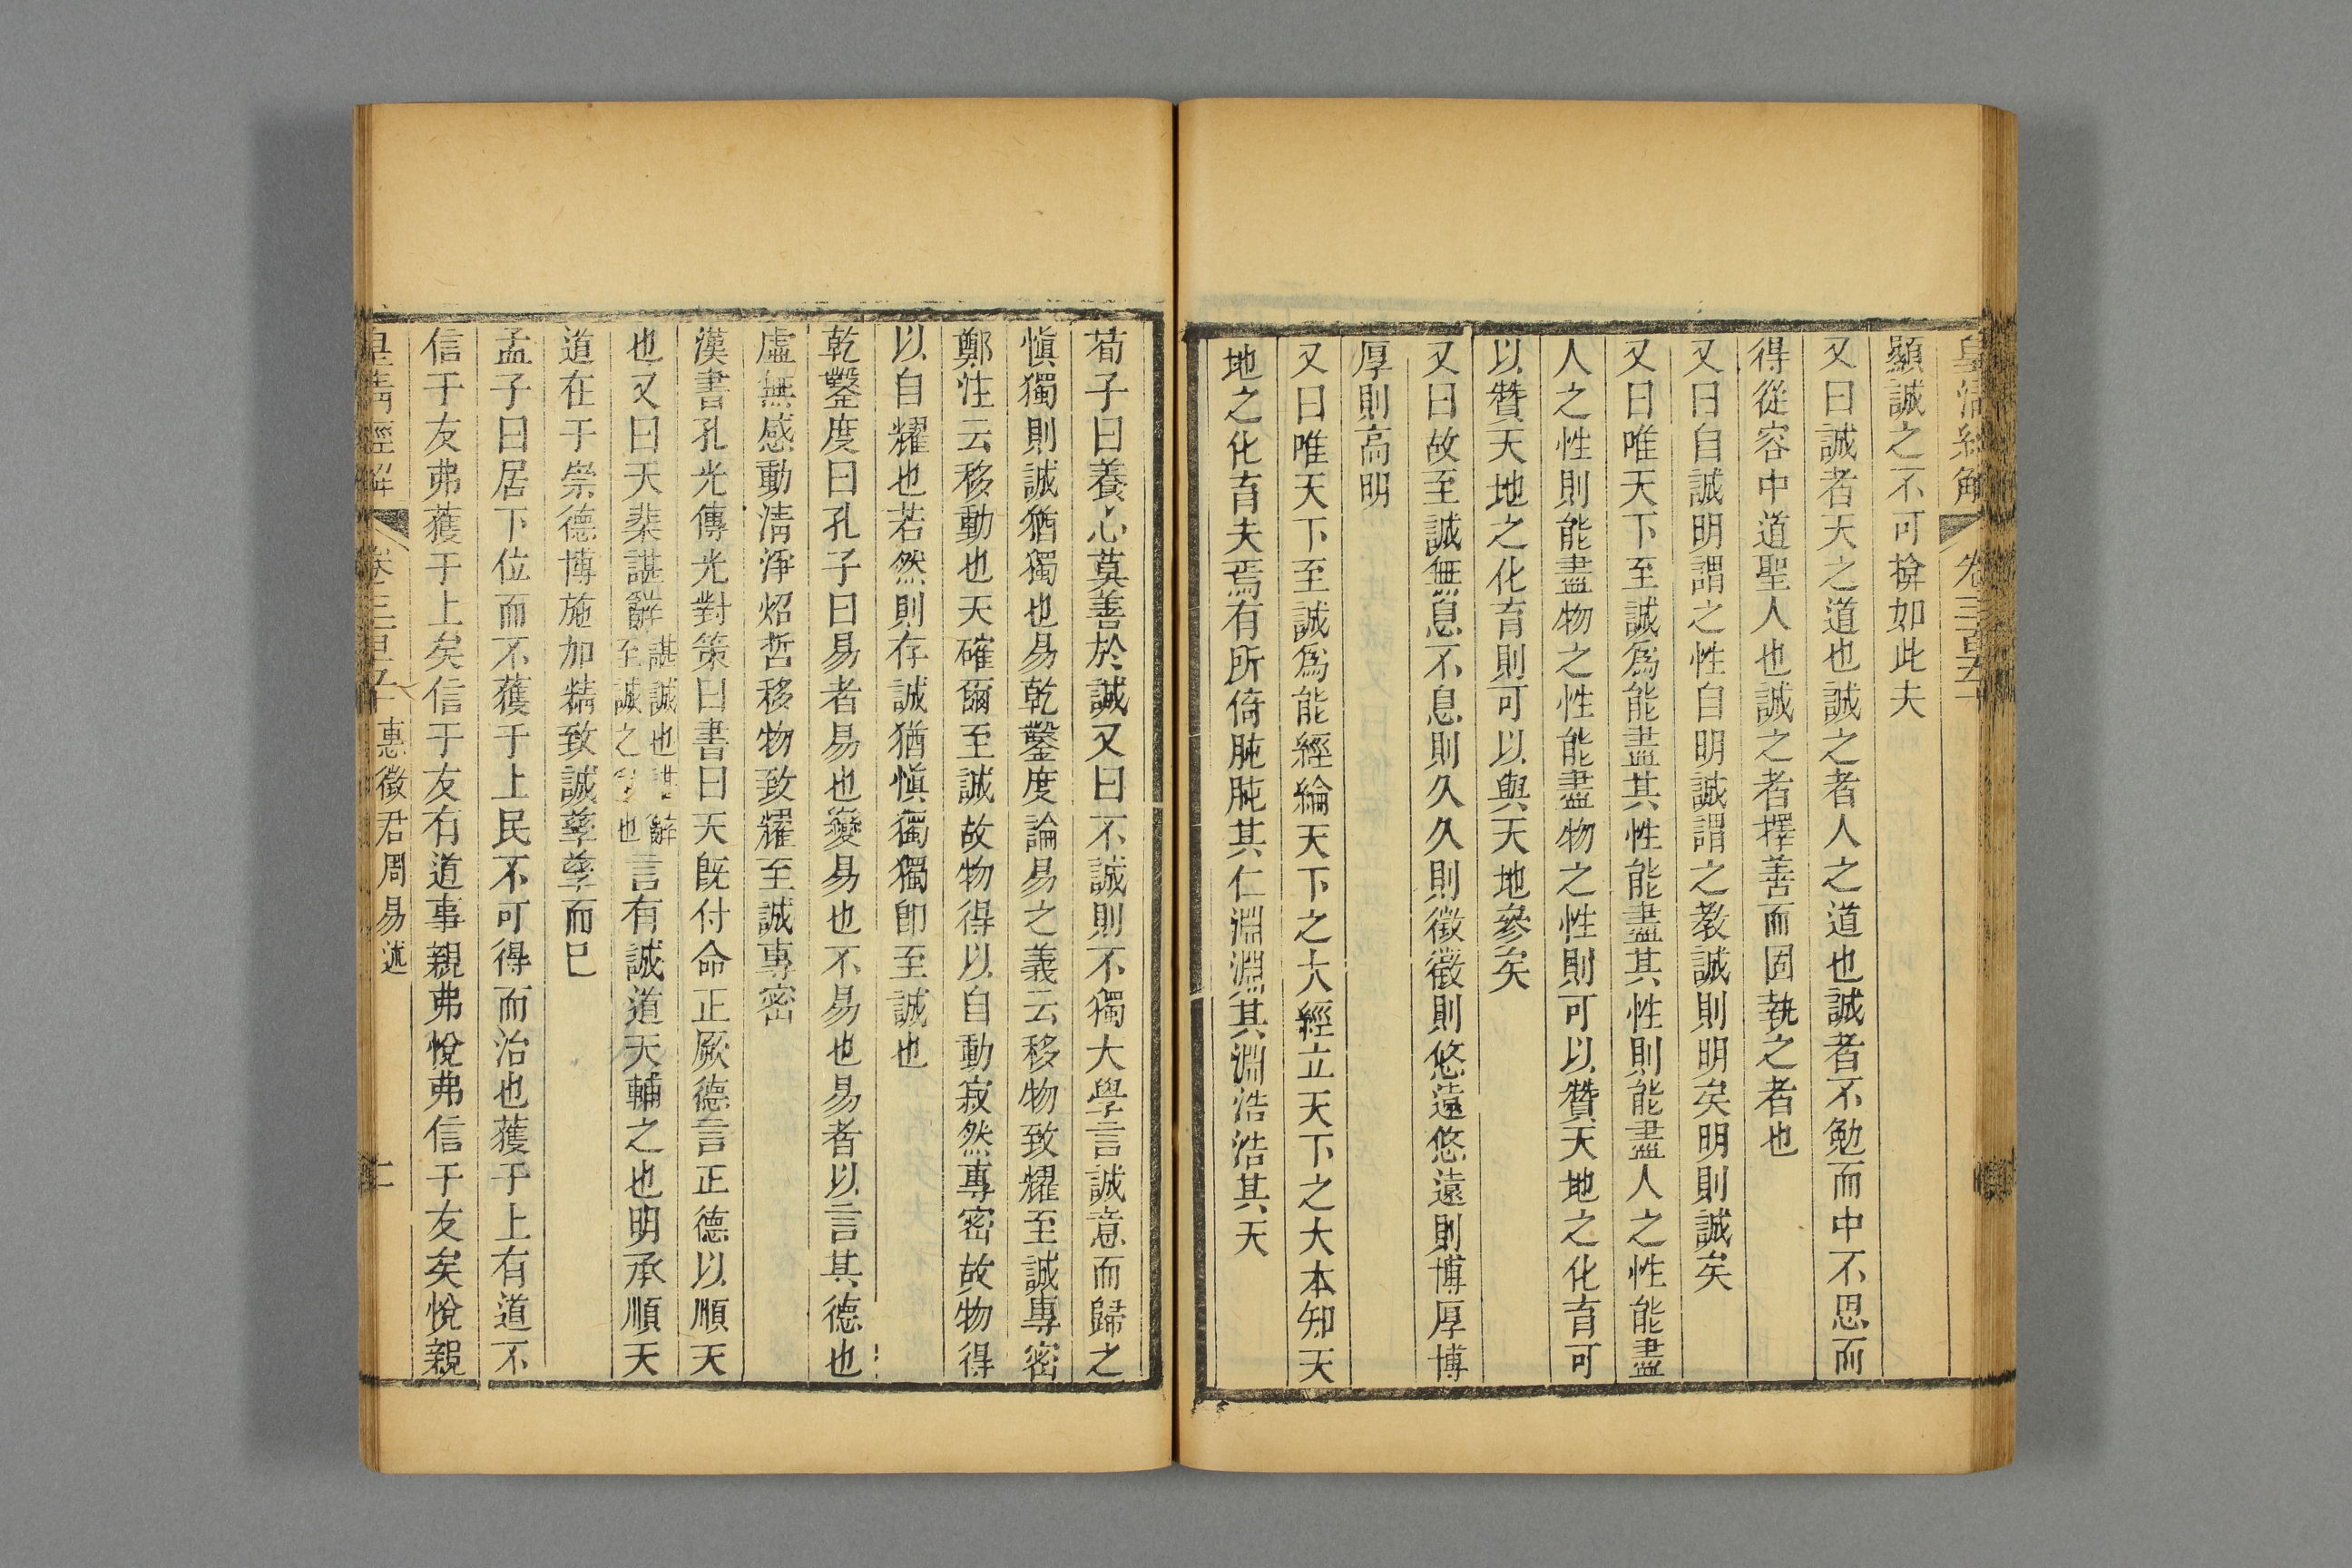 皇清經解 卷三百五十
顯誠之不可揜如此夫
又曰誠者天之道也誠之者人之道也誠者不勉而中不思而
得從容中道聖人也誠之者擇善而固執之者也
又曰自誠明謂之性自明誠謂之教誠則明矣明則誠矣
又曰唯天下至誠爲能盡其性能盡其性則能盡人之性能盡
人之性則能盡物之性能盡物之性則可以贊天地之化育可
以贊天地之化育則可以與天地參矣
又曰故至誠無息不息則久久則徵徵則悠遠悠遠則博厚博
厚則高明
又曰唯天下至誠爲能經綸天下之大經立天下之大本知天
地之化育夫焉有所倚肫肫其仁淵淵其淵浩浩其天
荀子曰養心莫善於誠又曰不誠則不獨大學言誠意而歸之
愼獨則誠猶獨也易乾鑿度論易之義云移物致耀至誠專密
鄭注云移動也天確爾至誠故物得以自動寂然專密故物得
以自耀也若然則存誠猶愼獨獨卽至誠也
乾鑿度曰孔子曰易者易也變易也不易也易者以言其德也
虛無感動淸淨炤哲移物致耀至誠專密
漢書孔光傳光對策曰書曰天旣付命正厥德言正德以順天
也又曰天棐諶辭諶誠也諶辭至誠之辭也言有誠道天輔之也明承順天
道在于崇德博施加精致誠孳孳而已
孟子曰居下位而不獲于上民不可得而治也獲于上有道不
信于友弗獲于上矣信于友有道事親弗悅弗信于友矣悅親
皇清經解 卷三百五十 惠徵君周易述